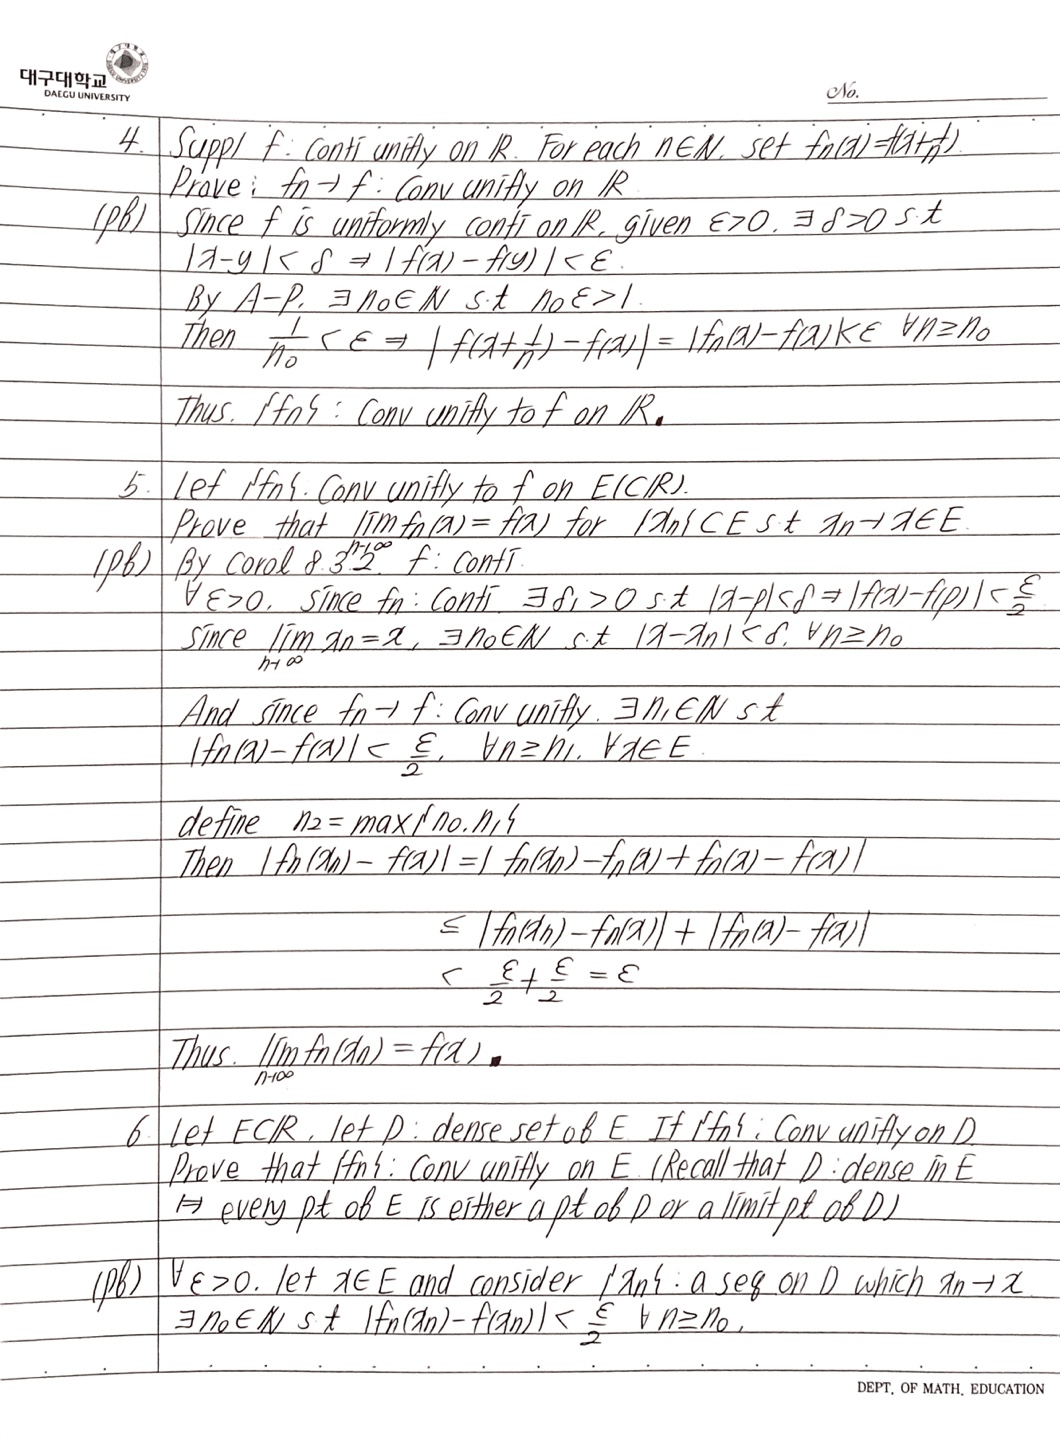 대구대학교
DAEGU UNIVERSITY
No.
4. Supp) f: conti unifly on ℝ. For each n∈ℕ. set fn(x)=f(x+1/n).
Prove: fn→f: Conv unifly on ℝ
(pf) Since f is uniformly conti on ℝ, given ε>0. ∃δ>0 s.t
|x-y|<δ ⇒ |f(x)-f(y)|<ε.
By A-P. ∃n₀∈ℕ s.t n₀ε>1.
Then 1/n₀ < ε ⇒ |f(x+1/n)-f(x)| = |fn(x)-f(x)|<ε ∀n≥n₀
Thus. {fn}: Conv unifly to f on ℝ.
5. Let {fn}. Conv unifly to f on E(⊂ℝ).
Prove that lim n→∞ fn(x) = f(x) for {xn}⊂E s.t xn→x∈E.
(pf) By Corol 8.3.2. f: conti.
∀ε>0. since fn: Conti ∃δ₁>0 s.t |x-p|<δ ⇒ |f(x)-f(p)|<ε/2
since lim n→∞ xn=x, ∃n₀∈ℕ s.t |x-xn|<δ. ∀n≥n₀
And since fn→f: Conv unifly. ∃n₁∈ℕ s.t
|fn(x)-f(x)|<ε/2. ∀n≥n₁. ∀x∈E.
define n₂=max{n₀.n₁}
Then |fn(xn)-f(x)|=|fn(xn)-fn(x)+fn(x)-f(x)|
≤ |fn(xn)-fn(x)|+|fn(x)-f(x)|
< ε/2+ε/2 = ε
Thus. lim n→∞ fn(xn) = f(x).
6 Let E⊂ℝ. let D: dense set of E If {fn}: Conv unifly on D.
Prove that {fn}: Conv unifly on E. (Recall that D: dense in E
⇔ every pt of E is either a pt of D or a limit pt of D)
(pf) ∀ε>0. let x∈E and consider {xn}: a seq on D which xn→x
∃n₀∈ℕ s.t |fn(xn)-f(xn)|<ε/2 ∀n≥n₀.
DEPT. OF MATH. EDUCATION